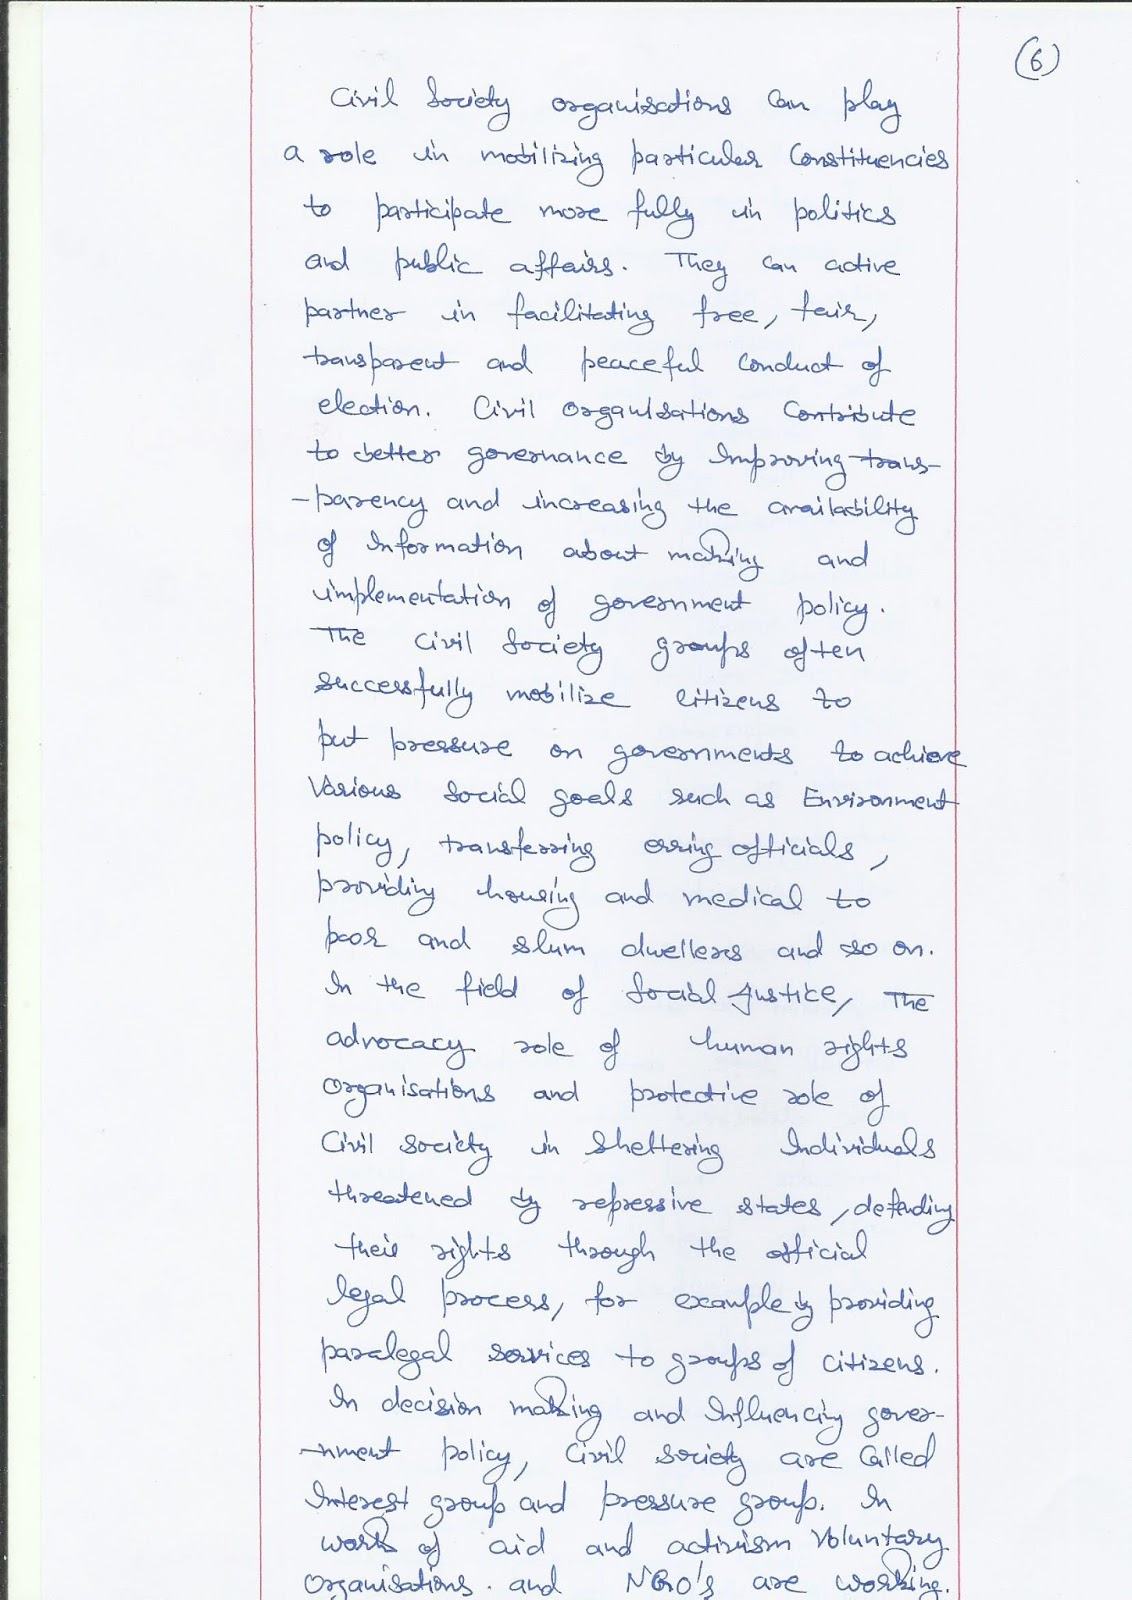 (6)
Civil Society organisations can play
a role in mobilizing particular constituencies
to participate more fully in politics
and public affairs. They can active
partner in facilitating free, fair,
transparent and peaceful conduct of
election. Civil organisations contribute
to better governance by improving trans-
-parency and increasing the availability
of Information about making and
implementation of government policy.
The civil society groups often
successfully mobilize citizens to
put pressure on governments to achieve
Various social goals such as Environment
policy, transferring erring officials,
providing housing and medical to
poor and slum dwellers and so on.
In the field of Social Justice, The
advocacy role of human rights
organisations and protective role of
Civil society in sheltering Individuals
threatened by repressive states, defending
their rights through the official
legal process, for example by providing
paralegal services to groups of citizens.
In decision making and Influencing gover-
-nment policy, Civil society are called
Interest group and pressure group. In
work of aid and activism Voluntary
organisations. and NGO's are working.